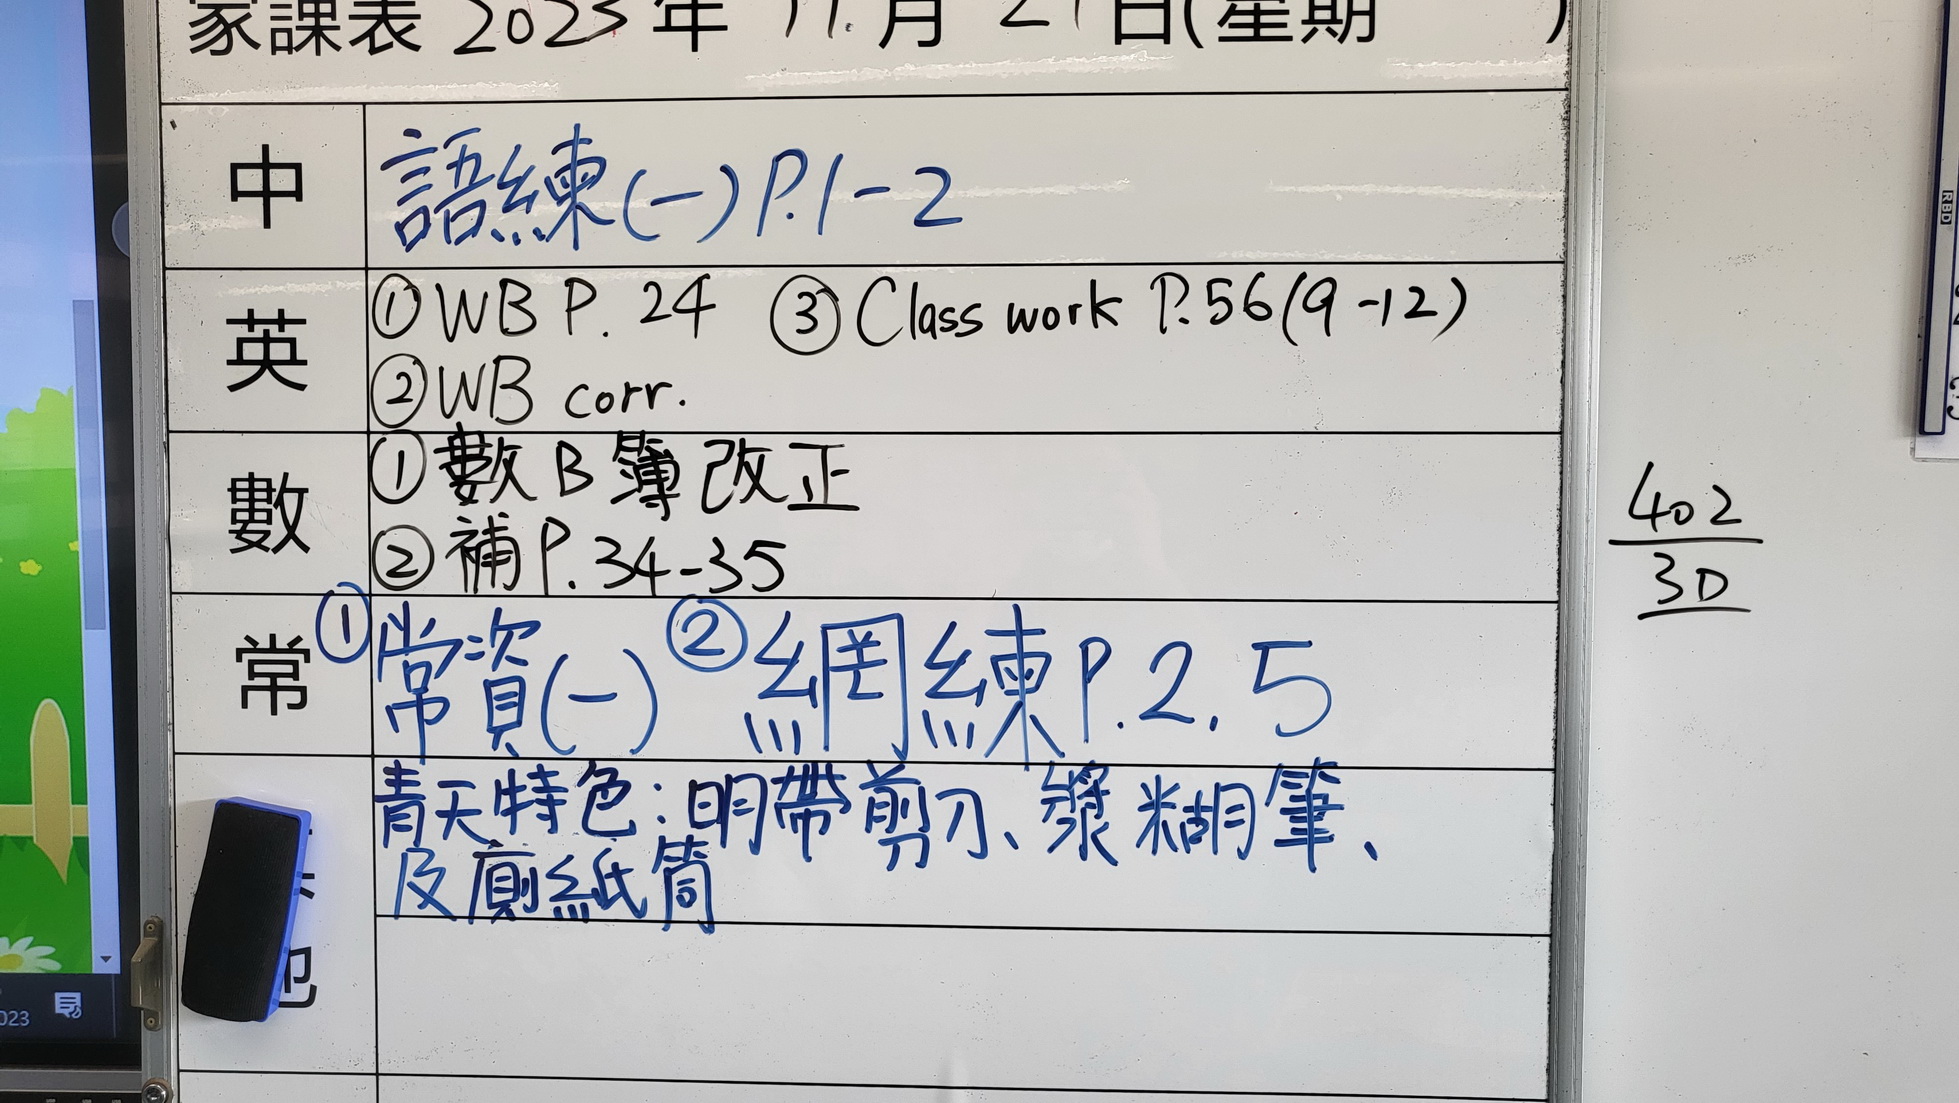 家課表 2023 年 11 月 21 日(星期 )
中 語練(一) P.1-2
英 ① WB P. 24 ③ Class work P.56(9-12)
② WB corr.
數 ① 數 B 簿 改正
② 補 P.34-35
常 ① 常資(一) ② 網練 P.2, 5
青天特色:明帶剪刀、漿糊筆、
及廁紙筒
402
30
023
RBD